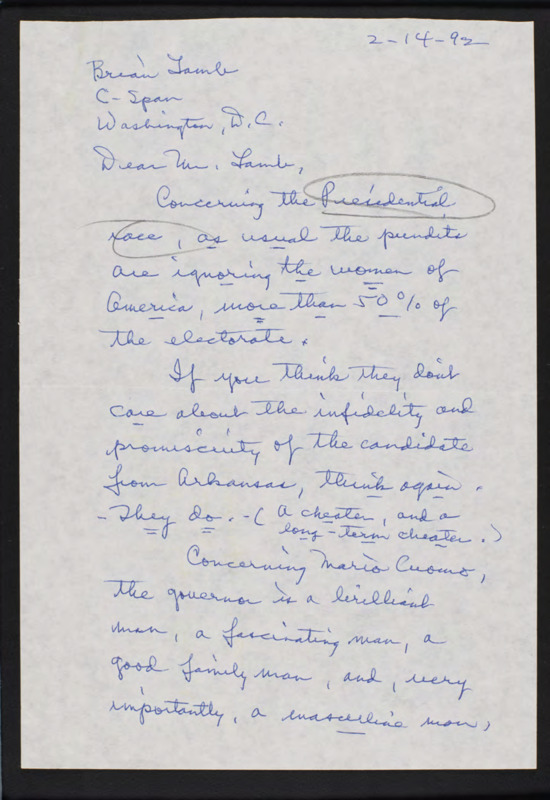 2-14-92
Brian Lamb
C-Span
Washington, D.C.
Dear Mr. Lamb,
Concerning the Presidential
race, as usual the pundits
are ignoring the women of
America, more than 50% of
the electorate.
If you think they don't
care about the infidelity and
promiscuity of the candidate
from Arkansas, think again.
- They do. - ( A cheater, and a
long-term cheater. )
Concerning Mario Cuomo,
the governor is a brilliant
man, a fascinating man, a
good family man, and, very
importantly, a masculine man,